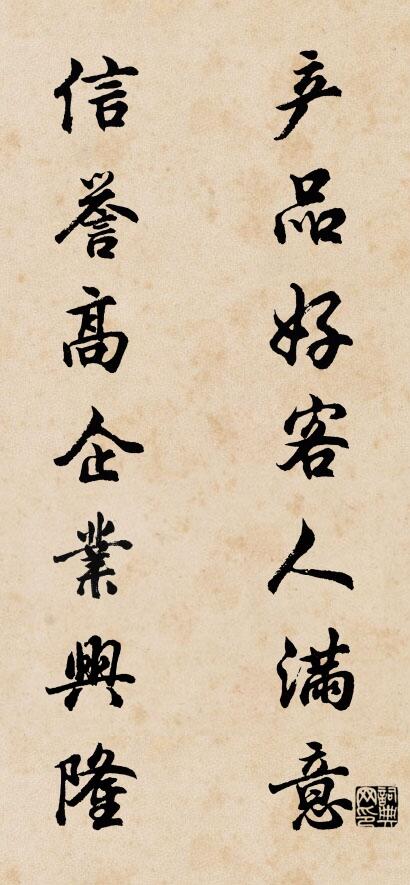 产品好客人满意
信誉高企業興隆
詞典网印